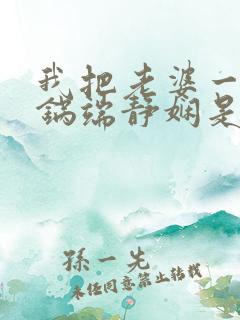 我把老婆一
鍋端静娴是
孫一先
未任同意禁止转载